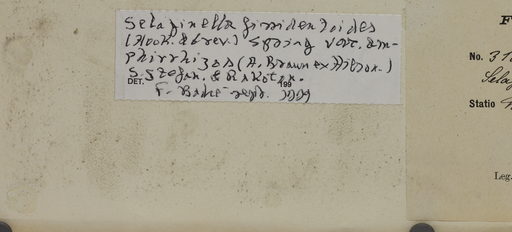 Selaginella fissidentoides
(Hook. & Grev.) Spring var. am-
phirrhizos (A. Braun ex Hieron.)
S. Stefan. & Rakoton.
DET. F. Badré sept. 1999
F
No. 31
Selag
Statio
Leg.